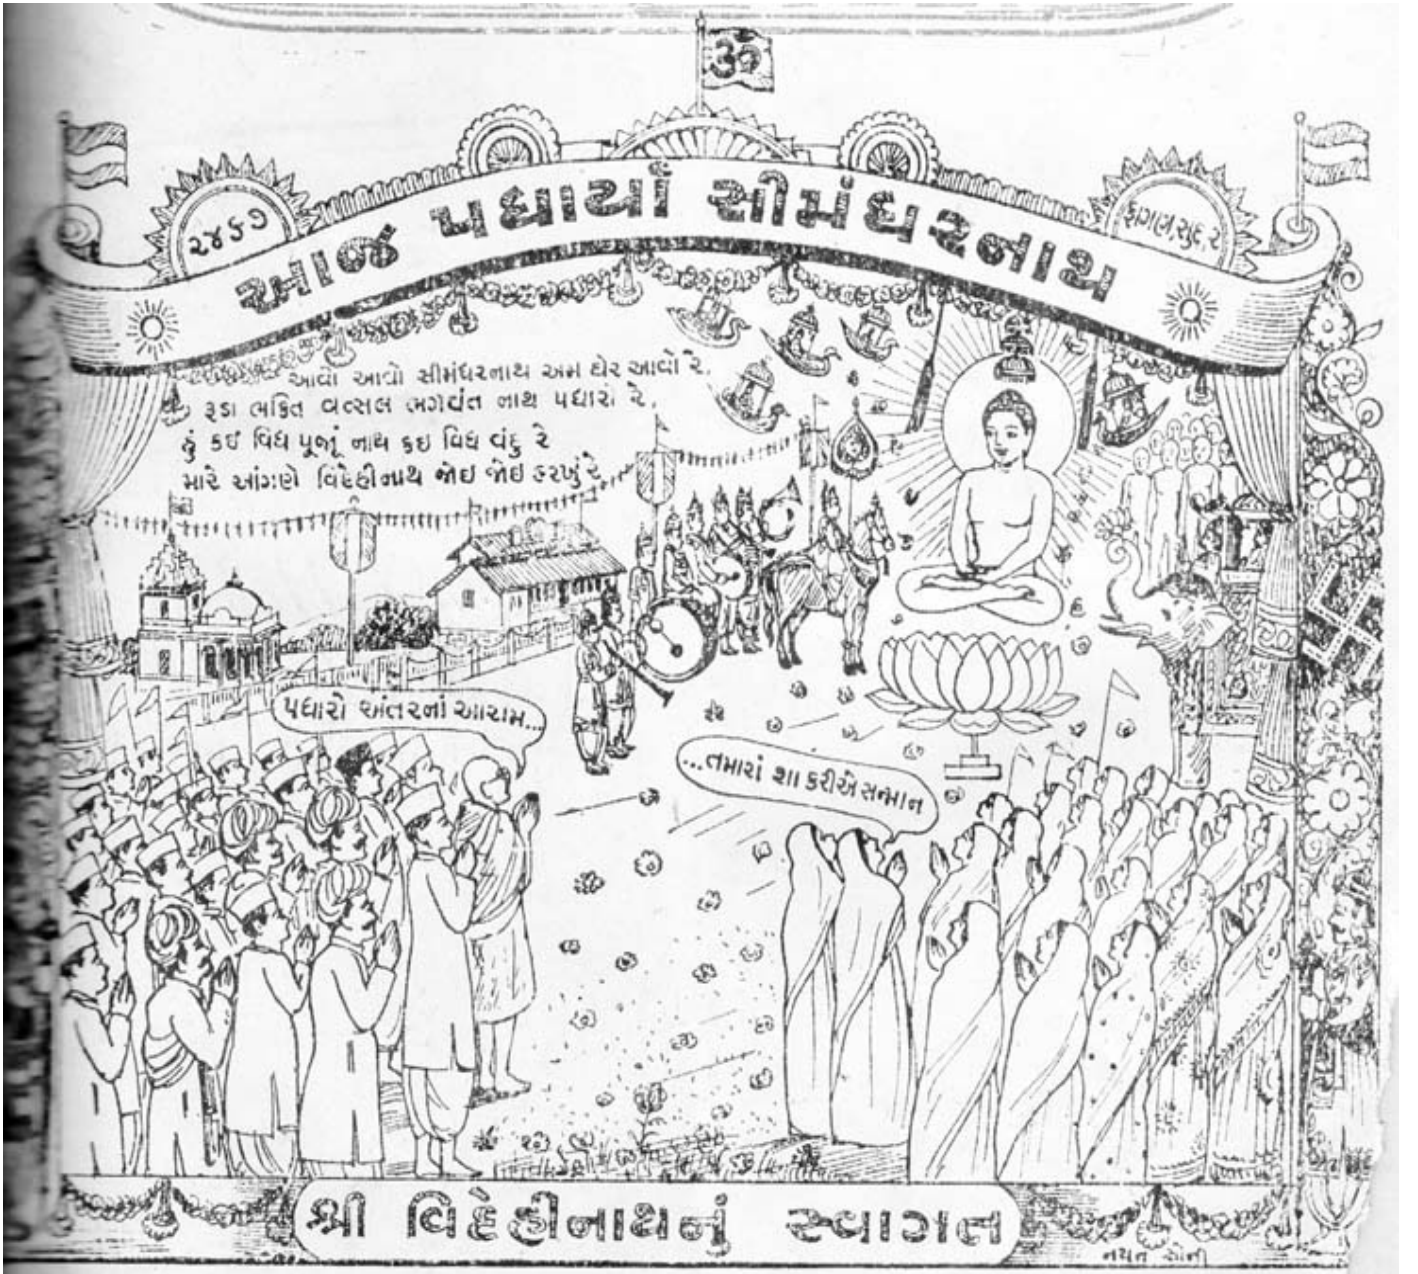 ૐ
૨૪૬૭
ફાગણ સુદ ૨
આજ પધાર્યા સીમંધરનાથ
આવો આવો સીમંધરનાથ અમ ઘેર આવો રે,
રૂડા ભક્તિ વત્સલ ભગવંત નાથ પધારો રે,
હું કઈ વિધ પૂજું નાથ કઇ વિધ વંદુ રે
મારે આંગણે વિદેહીનાથ જોઇ જોઇ હરખું રે
પધારો અંતરનાં આરામ...
...તમારાં શા કરીએ સન્માન
શ્રી વિદેહીનાથનું સ્વાગત
સોની